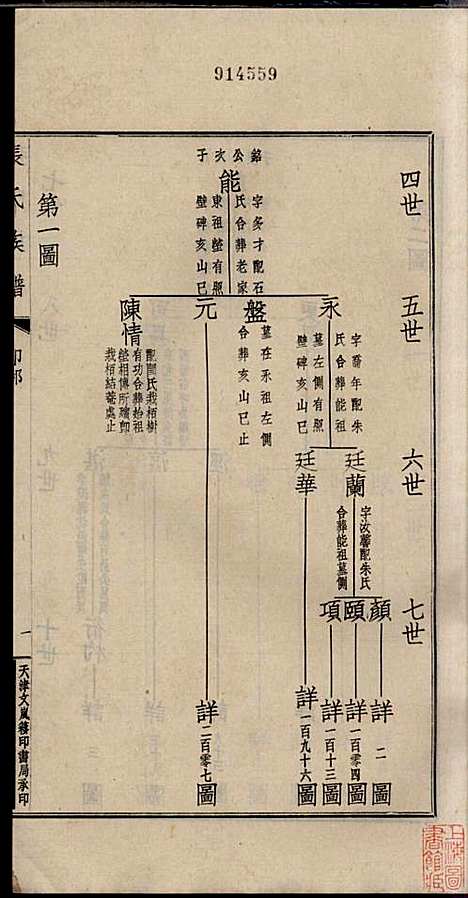 914559
四世
五世
六世
七世
銘公次子
能
字多才配石
氏合葬老家
東祖塋有照
壁碑亥山巳
永
字喬年配朱
氏合葬能祖
墓左側有照
壁碑亥山巳
盤
墓在永祖左側
合葬亥山巳止
元
陳情
配閻氏栽栢樹
有功合葬始祖
塋相傳所殯卽
栽栢結菴處止
廷蘭
字汝馨配朱氏
合葬能祖墓側
廷華
顏
頤
項
詳二圖
詳一百零四圖
詳一百十三圖
詳一百九十六圖
詳二百零七圖
第一圖
張氏族譜
一
天津文嵐簃印書局承印